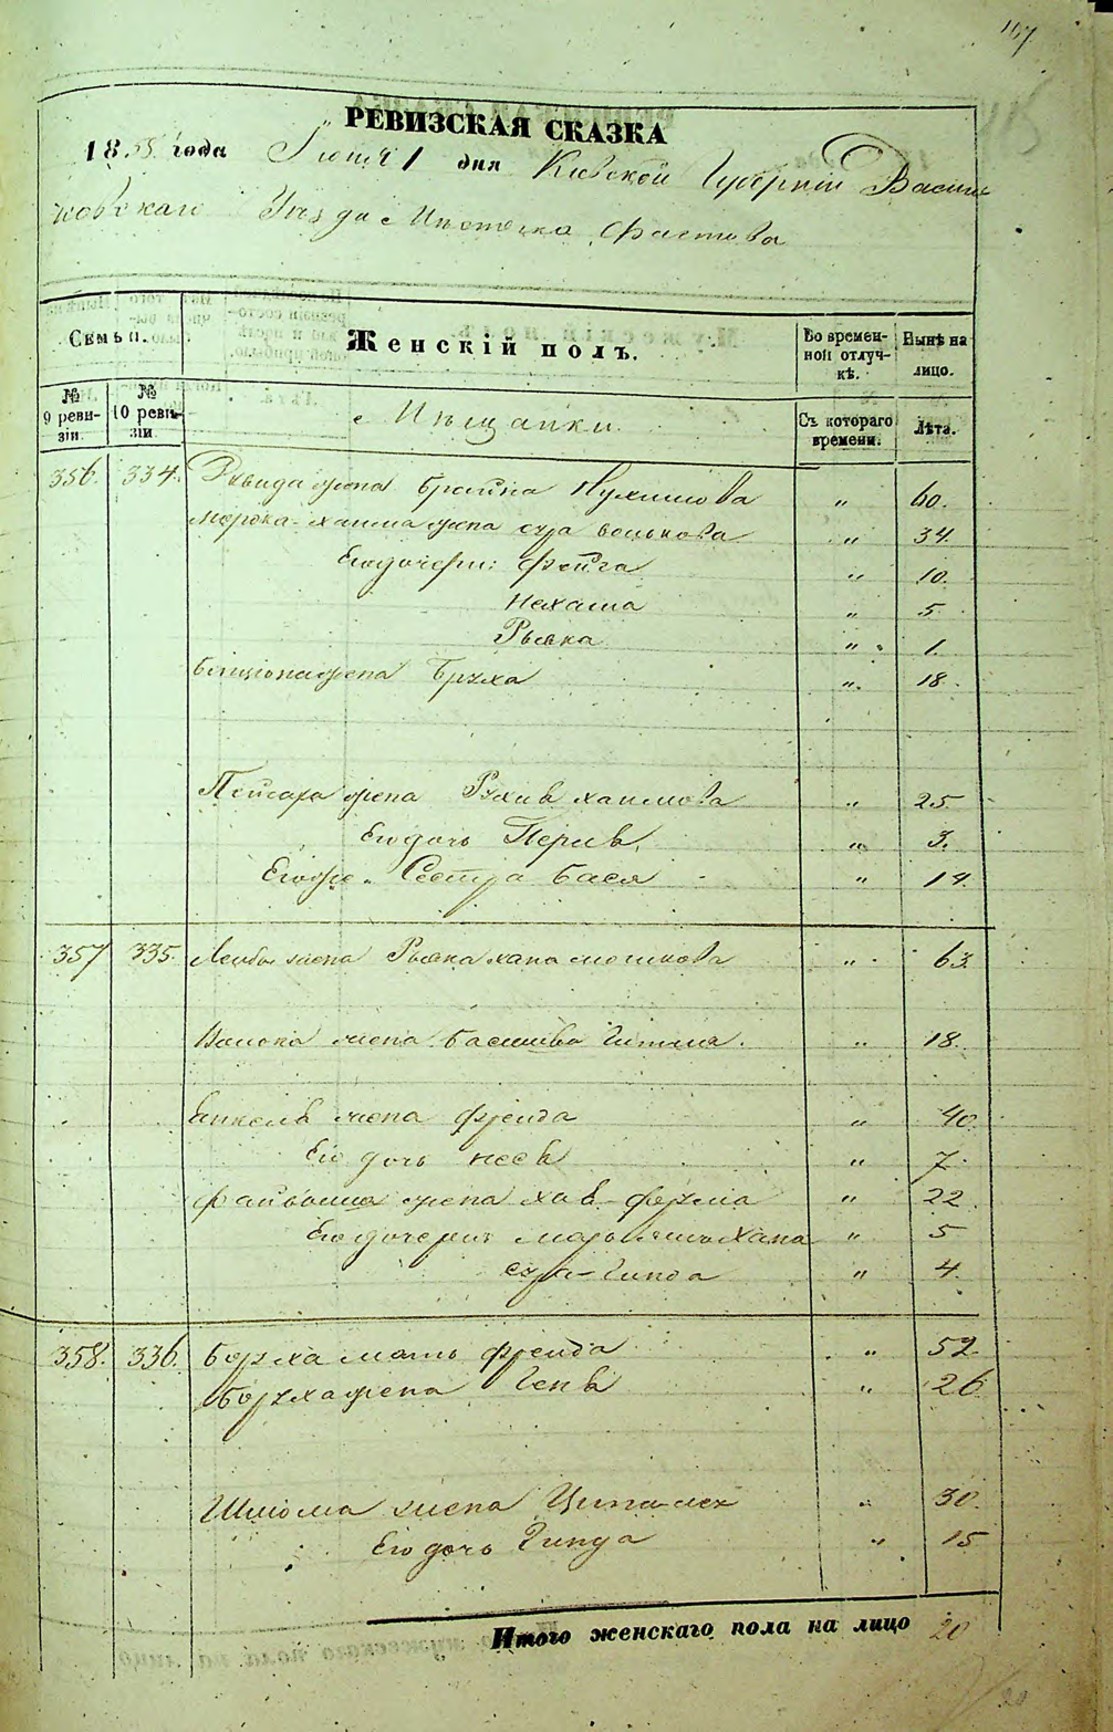 РЕВИЗСКАЯ СКАЗКА
1858 года Іюня 1 дня Кіевской Губерніи Василь
ковскаго Уѣзда Мѣстечка Фастова
Семьи.
Женскій полъ.
Во времен-
ной отлуч-
кѣ.
Нынѣ на
лицо.
№
9 реви-
зіи
№
10 реви-
зіи
Мѣщанки.
Съ котораго
времени.
Лѣта.
356. 334. жена Брайна " 60.
жена Сура Волькова " 34.
Его дочери: Фейга " 10.
Нехама " 5.
Рывка " 1.
Бенціона жена Бруха " 18.
Пейсаха жена Рухля Хаимова " 25.
Его дочь Перля " 3.
Его же Сестра Бася " 14.
357 335. Лейбы жена Рывка Хана Мошкова " 63.
жена Басшева Гитля. " 18.
жена Фрейда " 40.
Его дочь Неся " 7.
жена Хая Фрума " 22.
Его дочери Хана " 5
Сура-Гинда " 4.
358. 336. Боруха мать Фрейда " 52.
Боруха жена Геня " 26.
Шлиома жена Ципа " 30.
Его дочь Гинда " 15
Итого женскаго пола на лицо 20